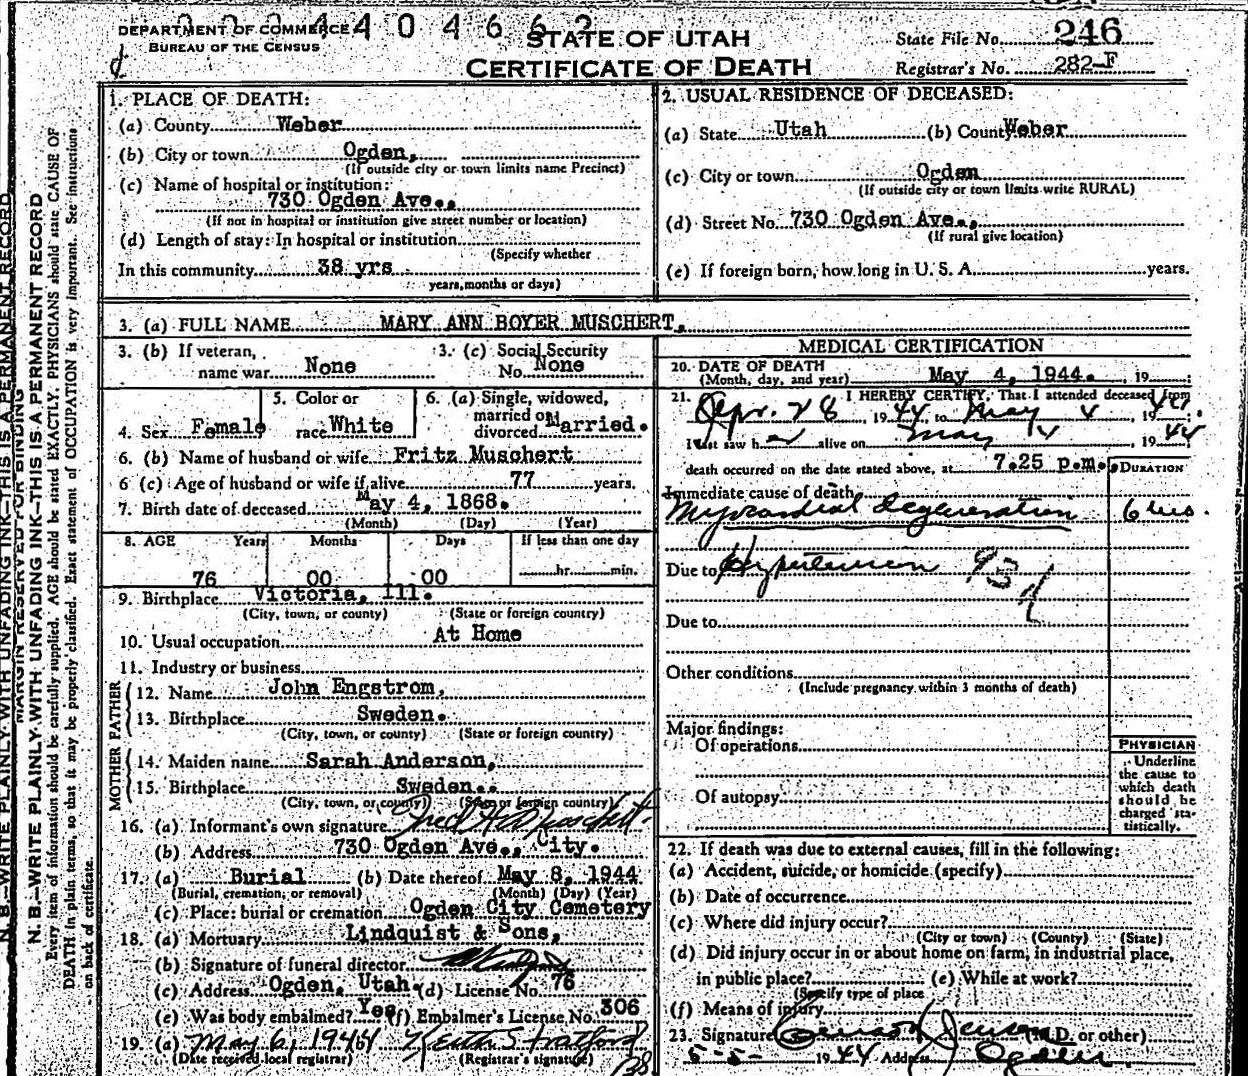 2 2 2 4 4 0 4 6 6 2
DEPARTMENT OF COMMERCE
BUREAU OF THE CENSUS
STATE OF UTAH
CERTIFICATE OF DEATH
State File No. 246
Registrar's No. 282-F
N. B.—WRITE PLAINLY WITH UNFADING INK—THIS IS A PERMANENT RECORD
MARGIN RESERVED FOR BINDING
N. B.—WRITE PLAINLY WITH UNFADING INK—THIS IS A PERMANENT RECORD
Every item of information should be carefully supplied. AGE should be stated EXACTLY. PHYSICIANS should state CAUSE OF
DEATH in plain terms, so that it may be properly classified. Exact statement of OCCUPATION is very important. See instructions
on back of certificate.
1. PLACE OF DEATH:
(a) County Weber
(b) City or town Ogden,
(If outside city or town limits name Precinct)
(c) Name of hospital or institution:
730 Ogden Ave.,
(If not in hospital or institution give street number or location)
(d) Length of stay: In hospital or institution
(Specify whether
In this community 38 yrs
years, months or days)
2. USUAL RESIDENCE OF DECEASED:
(a) State Utah (b) County Weber
(c) City or town Ogden
(If outside city or town limits write RURAL)
(d) Street No. 730 Ogden Ave.,
(If rural give location)
(e) If foreign born, how long in U. S. A. years.
3. (a) FULL NAME MARY ANN BOYER MUSCHERT,
3. (b) If veteran,
name war None
3. (c) Social Security
No. None
4. Sex Female
5. Color or
race White
6. (a) Single, widowed,
married or
divorced Married.
6. (b) Name of husband or wife Fritz Muschert
6 (c) Age of husband or wife if alive 77 years.
7. Birth date of deceased May 4, 1868.
(Month) (Day) (Year)
8. AGE Years Months Days If less than one day
76 00 00 hr. min.
9. Birthplace Victoria, Ill.
(City, town, or county) (State or foreign country)
10. Usual occupation At Home
11. Industry or business
FATHER
12. Name John Engstrom,
13. Birthplace Sweden.
(City, town, or county) (State or foreign country)
MOTHER
14. Maiden name Sarah Anderson,
15. Birthplace Sweden.
(City, town, or county) (State or foreign country)
16. (a) Informant's own signature Fred A. Muschert
(b) Address 730 Ogden Ave., City.
17. (a) Burial (b) Date thereof May 8, 1944
(Burial, cremation, or removal) (Month) (Day) (Year)
(c) Place: burial or cremation Ogden City Cemetery
18. (a) Mortuary Lindquist & Sons,
(b) Signature of funeral director
(c) Address Ogden, Utah. (d) License No. 76
(e) Was body embalmed? Yes (f) Embalmer's License No. 306
19. (a) May 6, 1944 (b)
(Date received local registrar) (Registrar's signature)
MEDICAL CERTIFICATION
20. DATE OF DEATH
(Month, day, and year) May 4, 1944. , 19
21. I HEREBY CERTIFY, That I attended deceased from
Apr. 28, 1944, to May 4, 1944.
I last saw her alive on May 4, 1944
death occurred on the date stated above, at 7.25 p.m.
DURATION
Immediate cause of death
Myocardial degeneration
Due to Hypertension 93d
Due to
Other conditions
(Include pregnancy within 3 months of death)
Major findings:
Of operations
Of autopsy
PHYSICIAN
Underline
the cause to
which death
should be
charged sta-
tistically.
22. If death was due to external causes, fill in the following:
(a) Accident, suicide, or homicide (specify)
(b) Date of occurrence
(c) Where did injury occur?
(City or town) (County) (State)
(d) Did injury occur in or about home on farm, in industrial place,
in public place? (e) While at work?
(Specify type of place
(f) Means of injury
23. Signature (M.D. or other)
5-5- 1944 Address Ogden